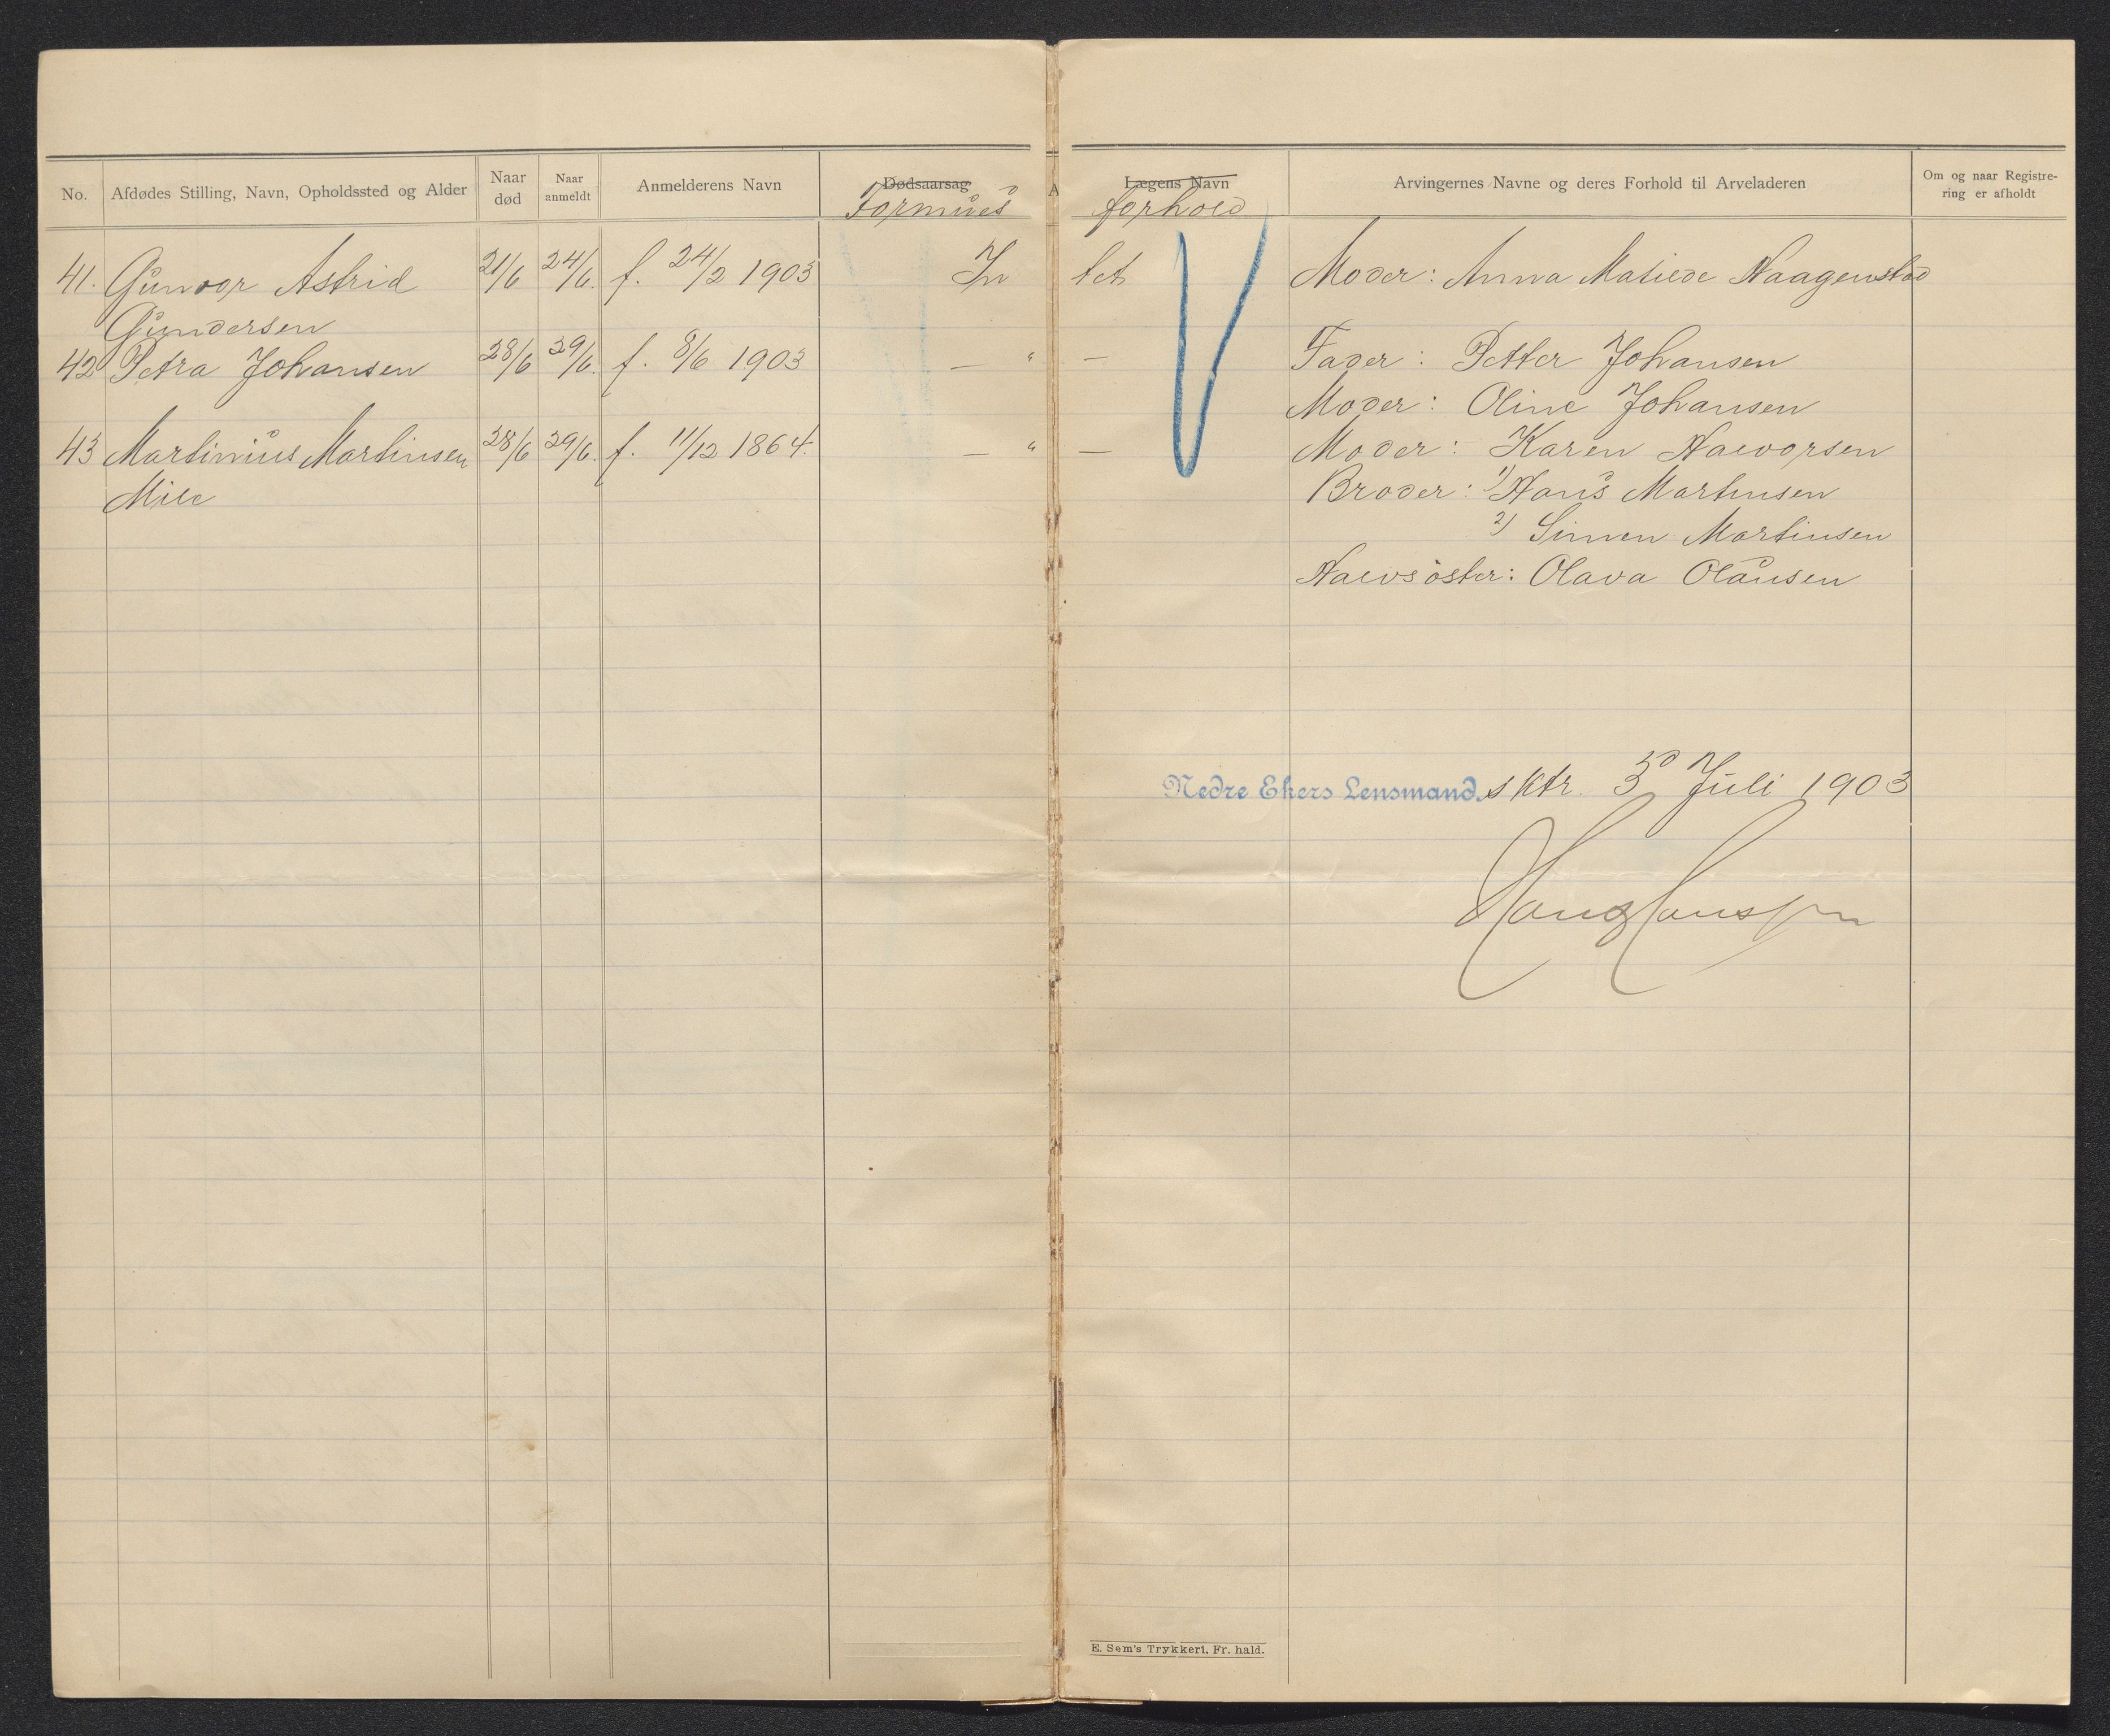 No. Afdødes Stilling, Navn, Opholdssted og Alder Naar død Naar anmeldt Anmelderens Navn Dødsaarsag Lægens Navn Arvingernes Navne og deres Forhold til Arveladeren Om og naar Registrering er afholdt
Formues forhold
41. Gunvor Astrid 21/6 24/6. f. 24/2 1903 In tet Moder: Anna Matilde Haagenstad
Gundersen
42 Petra Johansen 28/6 29/6. f. 8/6 1903 — " — Fader: Petter Johansen
Moder: Oline Johansen
43 Martinius Martinsen 28/6 29/6. f. 11/12 1864. — " — Moder: Karen Halvorsen
Mile Broder: 1) Hans Martinsen
2) Simen Martinsen
Halvsöster: Olava Olausen
Nedre Ekers Lensmand.sktr. 3d Juli 1903
Hans Hanssen
E. Sem's Trykkeri. Fr.hald.